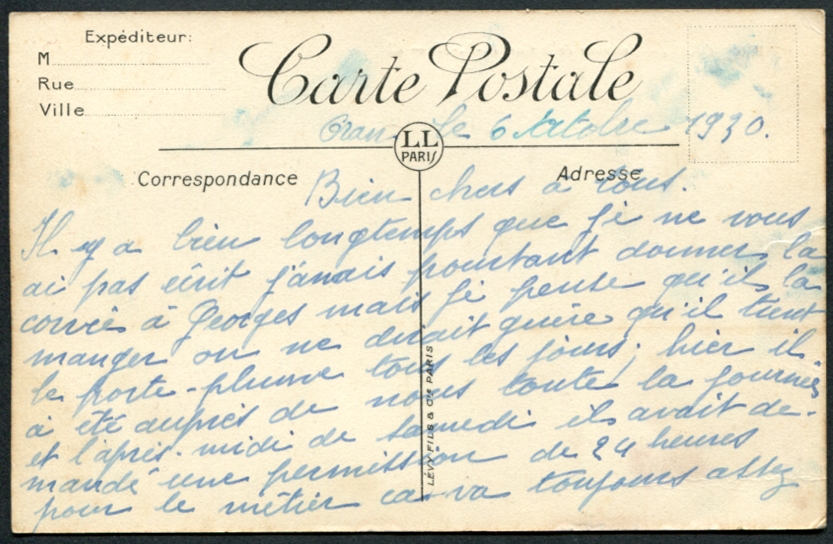 Expéditeur:
M
Rue
Ville
Carte Postale
Oran le 6 Octobre 1930.
LL
PARIS
Correspondance
Adresse
Bien chers à tous.
Il y a bien longtemps que je ne vous
ai pas écrit j'avais pourtant donner la
corvée à Georges mais je pense qu'il la
manger on ne dirait guère qu'il tient
le porte-plume tous les jours; hier il
à été auprès de nous toute la journée
et l'après-midi de samedi il avait de-
mandé une permission de 24 heures
pour le métier ca va toujours assez
LÉVY FILS & Cie PARIS